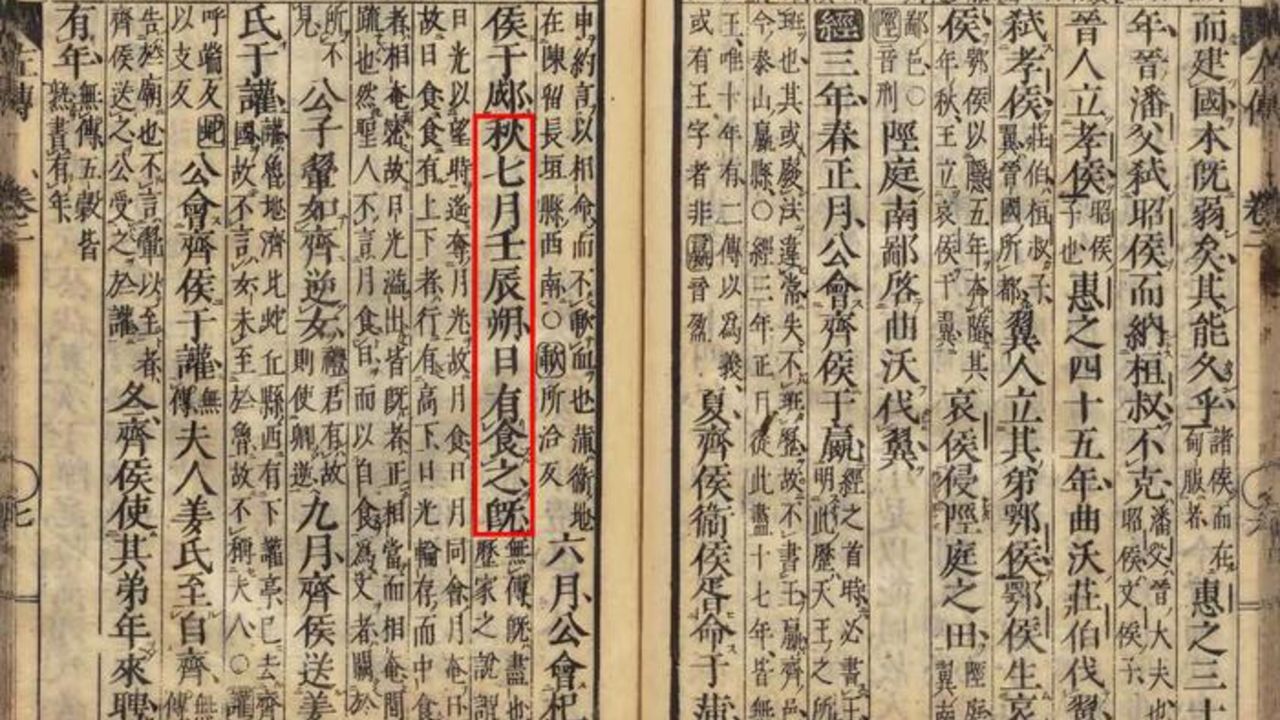 而建國本既弱矣其能久乎諸侯而在甸服者惠之三十
年晉潘父弒昭侯而納桓叔不克潘父晉大夫也昭侯文侯子
晉人立孝侯昭侯子也惠之四十五年曲沃莊伯伐翼
弒孝侯莊伯桓叔子翼晉國所都翼人立其弟鄂侯鄂侯生哀
侯鄂侯以隱五年奔隨其年秋王立哀侯于翼哀侯侵陘庭之田陘庭翼南
鄙邑○陘音刑陘庭南鄙啓曲沃伐翼
經三年春正月公會齊侯于嬴經之首時必書王明此歷天王之所
班也其或廢法違常失不班歷故不書王嬴齊邑今泰山嬴縣○經三年正月從此盡十七年皆無
王唯十年有二傳以為義或有王字者非嬴音盈夏齊侯衛侯胥命于蒲
申約言以相命而不歃血也蒲衛地在陳留長垣縣西南○歃所洽反六月公會杞
侯于郕秋七月壬辰朔日有食之既無傳既盡也歷家之說謂
日光以望時遙奪月光故月食日月同會月奄日故日食食有上下者行有高下日光輪存而中食
者相奄密故日光溢出皆既者正相當而相奄間疏也然聖人不言月食日而以自食為文者闕於
所不見公子翬如齊逆女禮君有故則使卿逆九月齊侯送姜
氏于讙讙魯地濟北蛇丘縣西有下讙亭已去齊國故不言女未至於魯故不稱夫人○讙
呼端反蛇以支反公會齊侯于讙無傳夫人姜氏至自齊無傳
告於廟也不言翬以至者齊侯送之公受之於讙冬齊侯使其弟年來聘
有年無傳五穀皆熟書有年
左傳 卷二